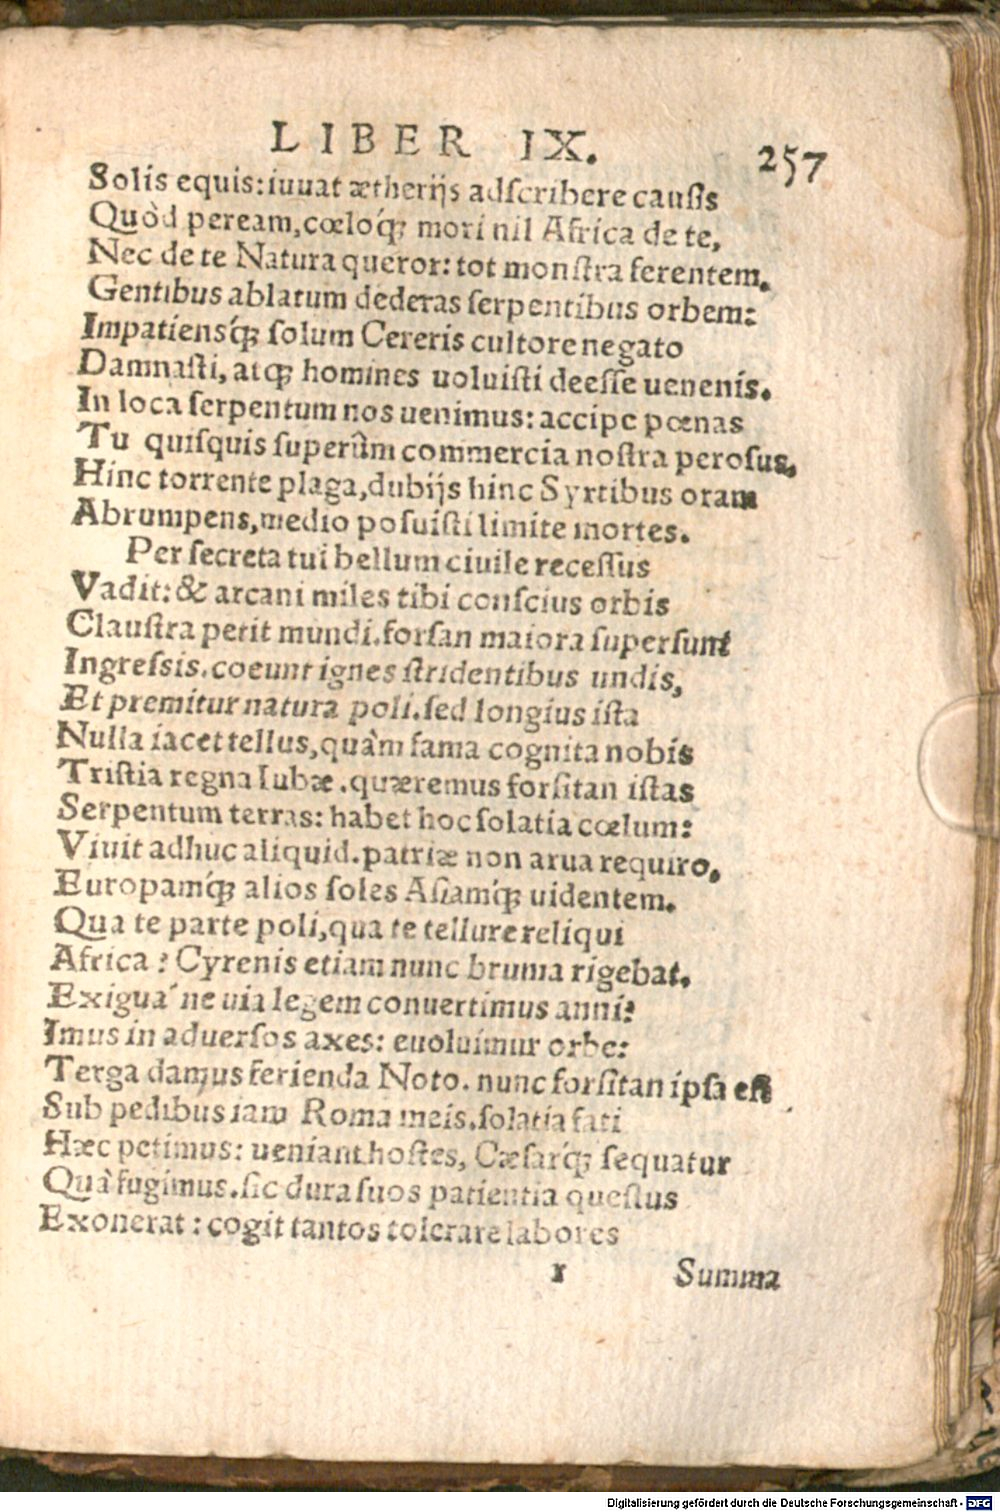 LIBER IX. 257
Solis equis: iuuat ætherijs adſcribere cauſis
Quòd peream, cœloq́; mori nil Africa de te,
Nec de te Natura queror: tot monſtra ferentem.
Gentibus ablatum dederas ſerpentibus orbem:
Impatiensq́; ſolum Cereris cultore negato
Damnaſti, atq; homines uoluiſti deeſſe uenenis.
In loca ſerpentum nos uenimus: accipe pœnas
Tu quiſquis ſuperûm commercia noſtra peroſus,
Hinc torrente plaga, dubijs hinc Syrtibus oram
Abrumpens, medio poſuiſti limite mortes.
Per ſecreta tui bellum ciuile receſſus
Vadit: & arcani miles tibi conſcius orbis
Clauſtra petit mundi. forſan maiora ſuperſunt
Ingreſsis. coeunt ignes ſtridentibus undis,
Et premitur natura poli. ſed longius iſta
Nulla iacet tellus, quàm fama cognita nobis
Triſtia regna Iubæ. quæremus forſitan iſtas
Serpentum terras: habet hoc ſolatia cœlum:
Viuit adhuc aliquid. patriæ non arua requiro,
Europamq́; alios ſoles Aſiamq́; uidentem.
Qua te parte poli, qua te tellure reliqui
Africa? Cyrenis etiam nunc bruma rigebat.
Exiguá ne uia legem conuertimus anni?
Imus in aduerſos axes: euoluimur orbe:
Terga damus ferienda Noto. nunc forſitan ipſa eſt
Sub pedibus iam Roma meis. ſolatia fati
Hæc petimus: ueniant hoſtes, Cæſarq́; ſequatur
Quà fugimus. ſic dura ſuos patientia queſtus
Exonerat: cogit tantos tolerare labores
r Summa
Digitalisierung gefördert durch die Deutsche Forschungsgemeinschaft - DFG